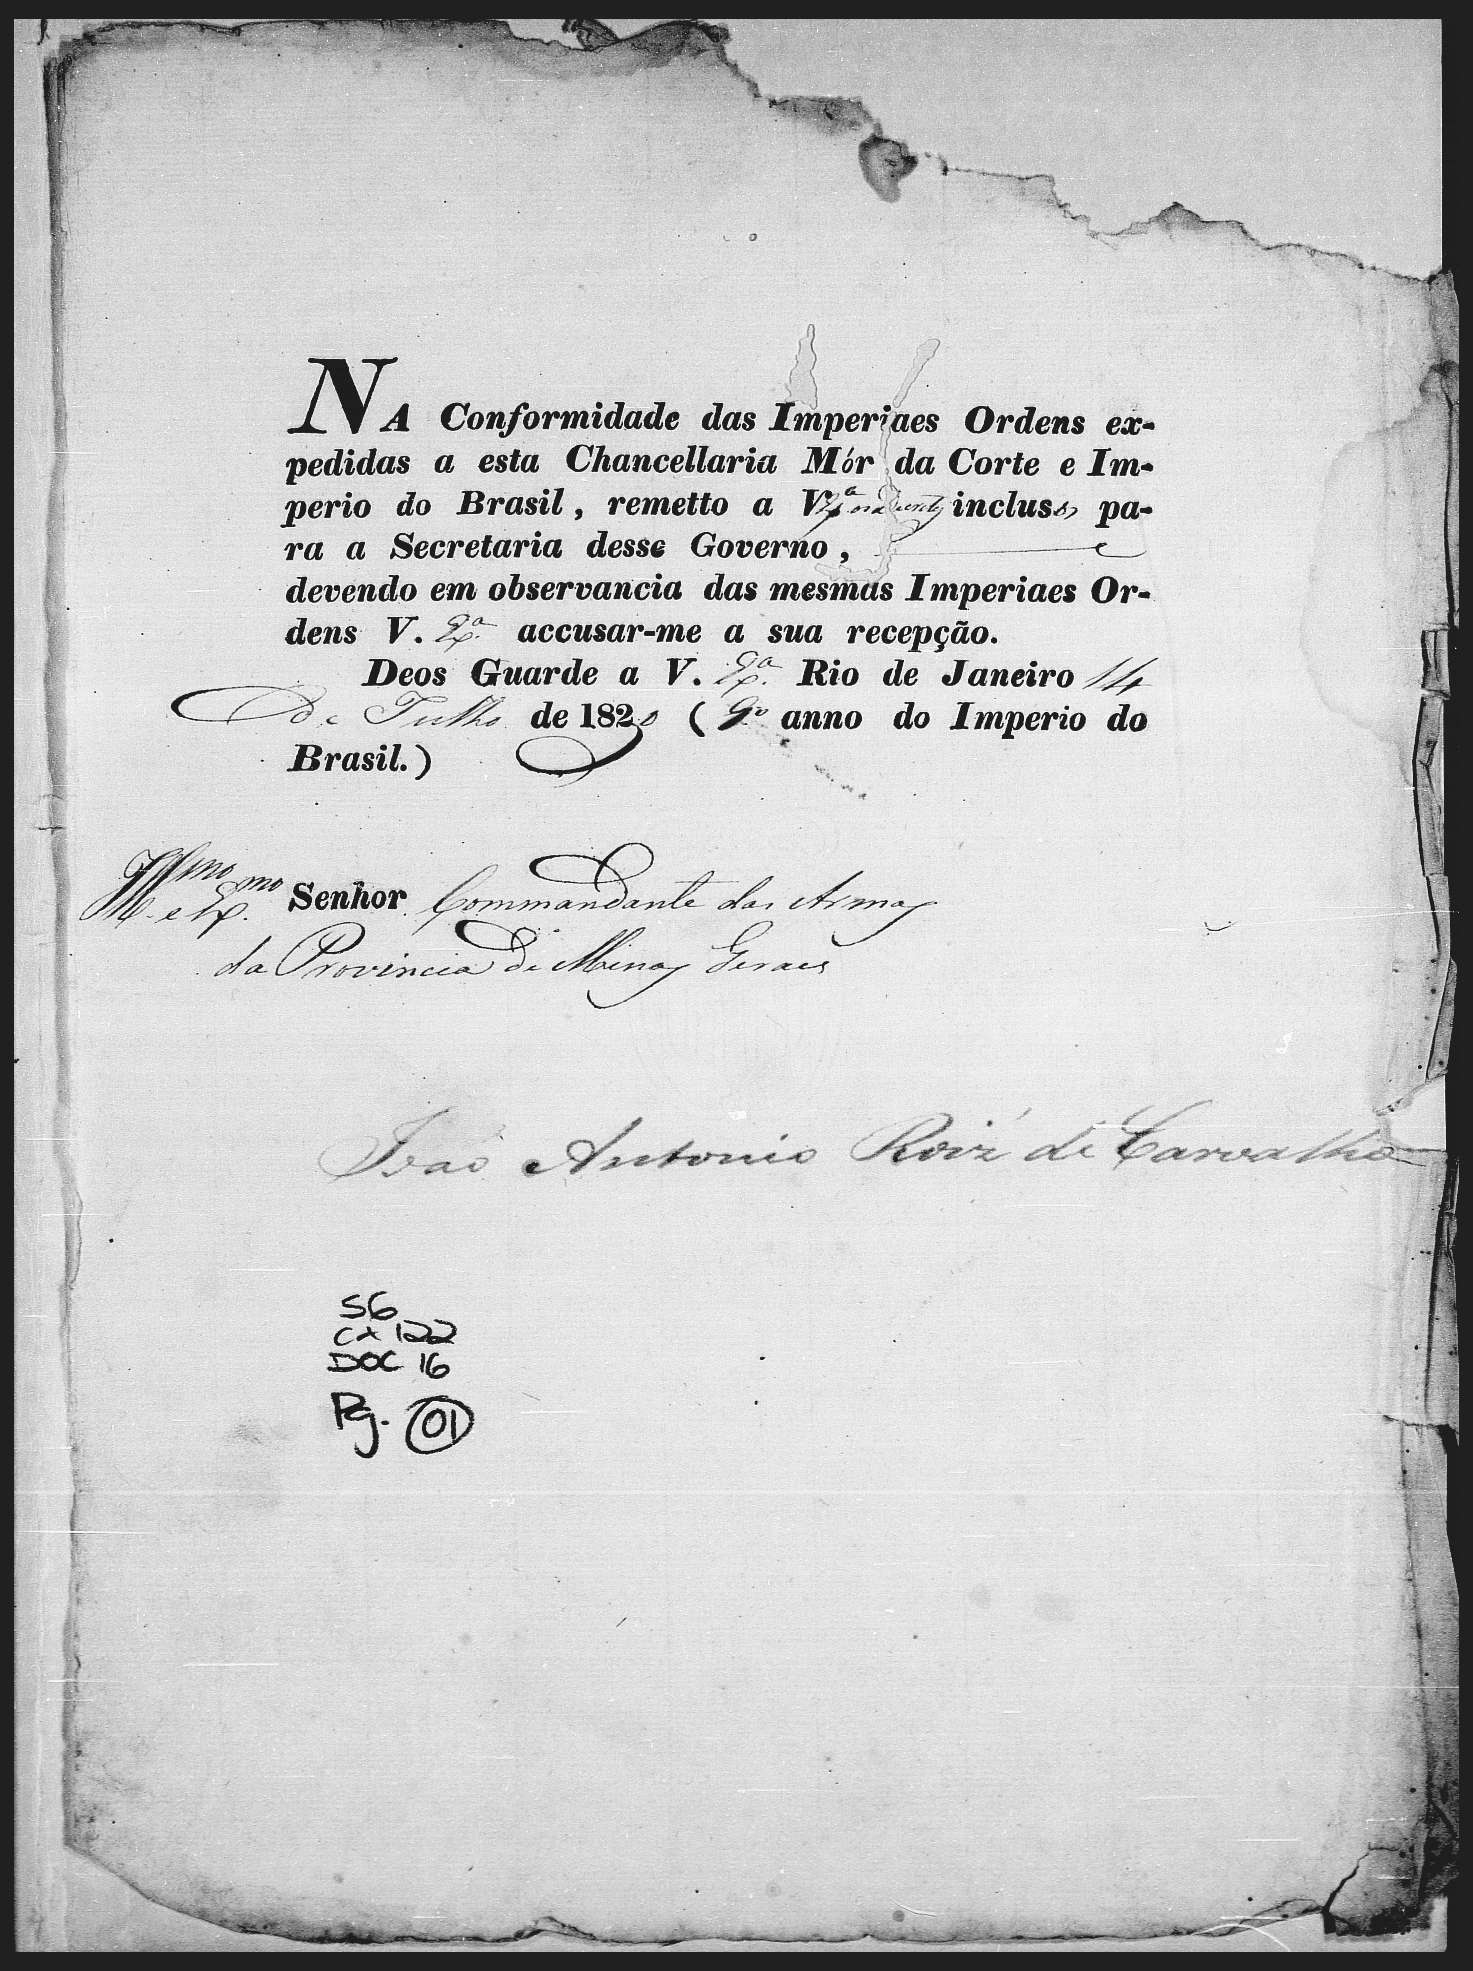 NA Conformidade das Imperiaes Ordens ex-
pedidas a esta Chancellaria Mór da Corte e Im-
perio do Brasil, remetto a V. Exª inclusos pa-
ra a Secretaria desse Governo,
devendo em observancia das mesmas Imperiaes Or-
dens V. Exª accusar-me a sua recepção.
Deos Guarde a V. Exª Rio de Janeiro 14
de Julho de 1830 (9º anno do Imperio do
Brasil.)
Illmo e Exmo Senhor Commandante das Armas
da Provincia de Minas Geraes
João Antonio Roiz de Carvalho
S6
CX 122
DOC 16
Pg. 01